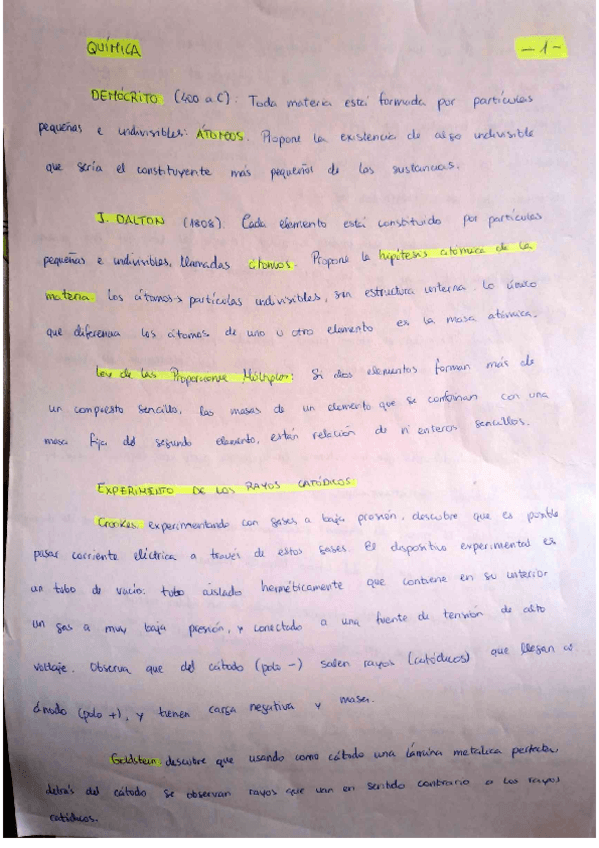 QUÍMICA
-1-
DEMÓCRITO (400 a C): Toda materia está formada por partículas
pequeñas e indivisibles: ÁTOMOS. Propone la existencia de algo indivisible
que sería el constituyente más pequeños de las sustancias.
J. DALTON (1808). Cada elemento está constituido por partículas
pequeñas e indivisibles, llamadas átomos. Propone la hipótesis atómica de la
materia. Los átomos > partículas indivisibles, sin estructura interna. Lo único
que diferencia los átomos de uno u otro elemento es la masa atómica.
Ley de las Proporciones Múltiples: Si dos elementos forman más de
un compuesto sencillo, las masas de un elemento que se combinan con una
masa fija del segundo elemento, están relación de nº enteros sencillos.
EXPERIMENTO DE LOS RAYOS CATÓDICOS
Crookes. experimentando con gases a baja presión, descubre que es posible
pasar corriente eléctrica a través de estos gases. El dispositivo experimental es
un tubo de vacío: tubo aislado herméticamente que contiene en su interior
un gas a muy baja presión, y conectado a una fuente de tensión de alto
voltaje. Observa que del cátodo (polo -) salen rayos (catódicos) que llegan
ánodo (polo +), y tienen carga negativa y masa.
Goldstein. descubre que usando como cátodo una lámina metálica
detrás del cátodo se observan rayos que van en sentido contrario a los rayos
catódicos.